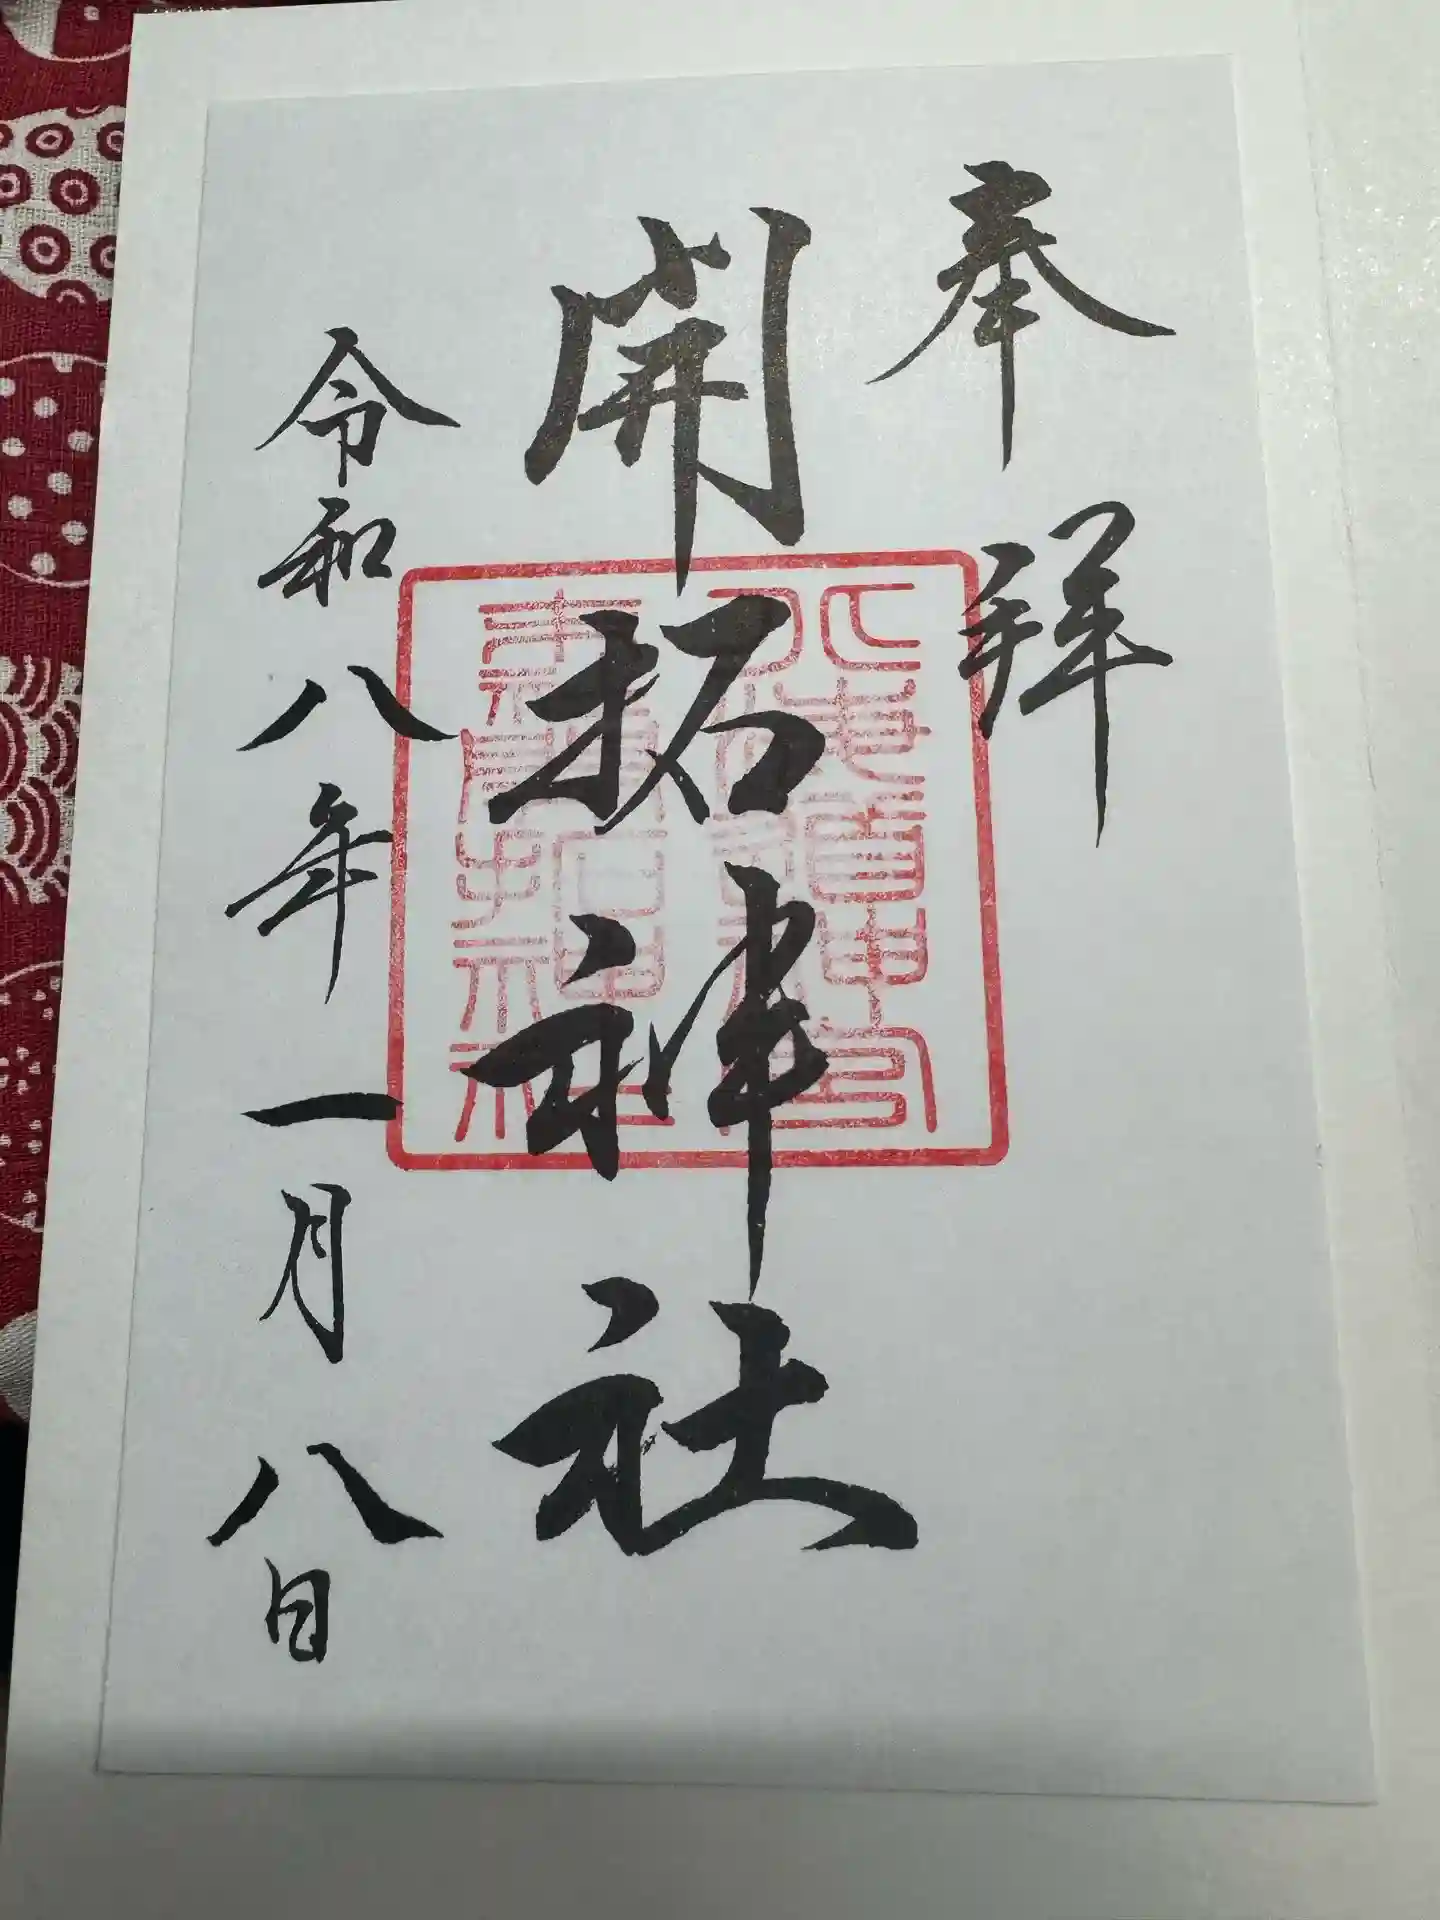 奉拝
開拓神社
北海道神宮末社開拓神社
令和八年一月八日